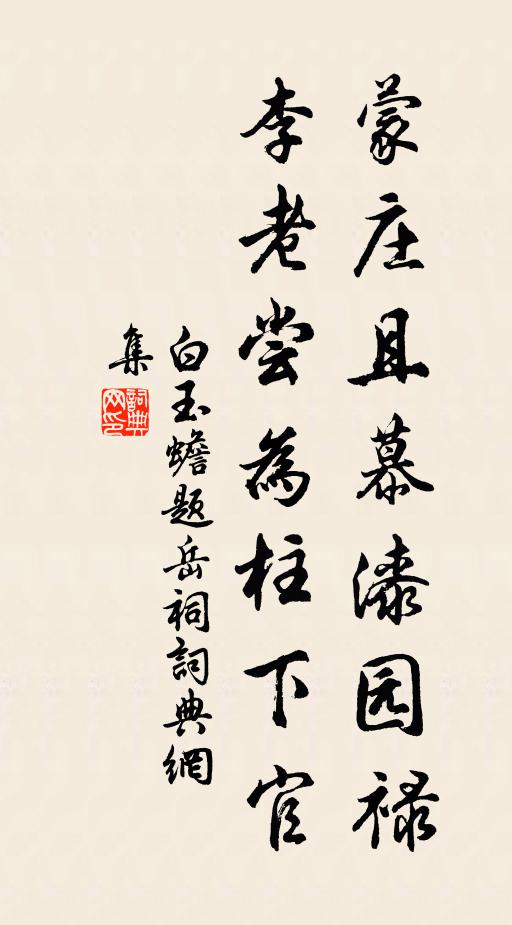 蒙庄且慕漆园禄
李老尝為柱下官
白玉蟾题岳祠詞典網
集
詞典网印